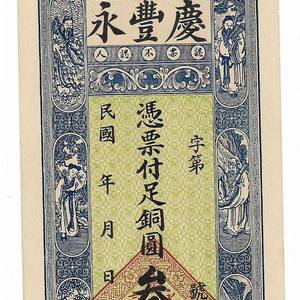 慶豐永
認票不認人
字第 號
憑票付足銅圓叁
民國 年 月 日